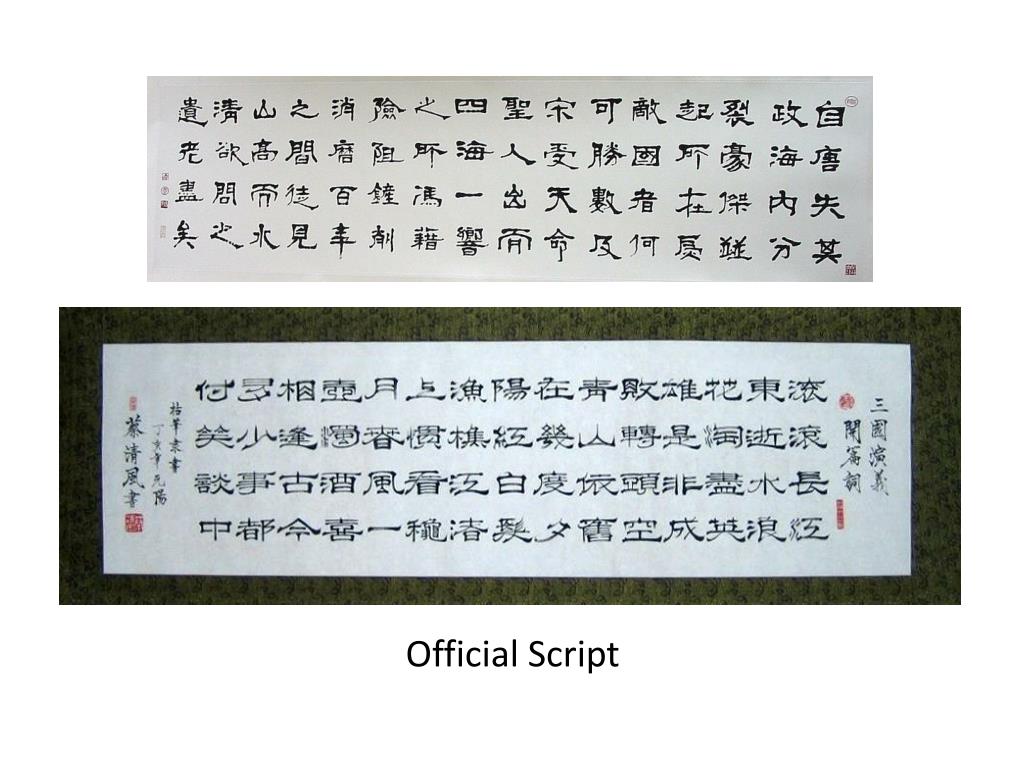 自唐失其
政海內分
裂豪傑並
起所在為
敵國者何
可勝數及
宋受天命
聖人出而
四海一響
之所馮藉
險阻鏟削
消磨百年
之間徒見
山高而水
清欲問之
遺老盡矣
三國演義
開篇詞
滾滾長江
東逝水浪
花淘盡英
雄是非成
敗轉頭空
青山依舊
在幾度夕
陽紅白髮
漁樵江渚
上慣看穐
月春風一
壺濁酒喜
相逢古今
多少事都
付笑談中
枯筆隸書
丁亥年元陽
蔡清風書
Official Script